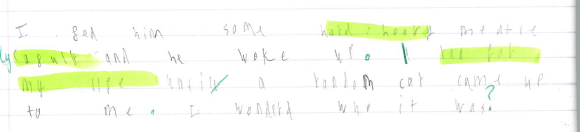 I fed him some hard, heavy
and he woke up. I ran for
my life until a random cat came up
to me. I wonderd who it was?